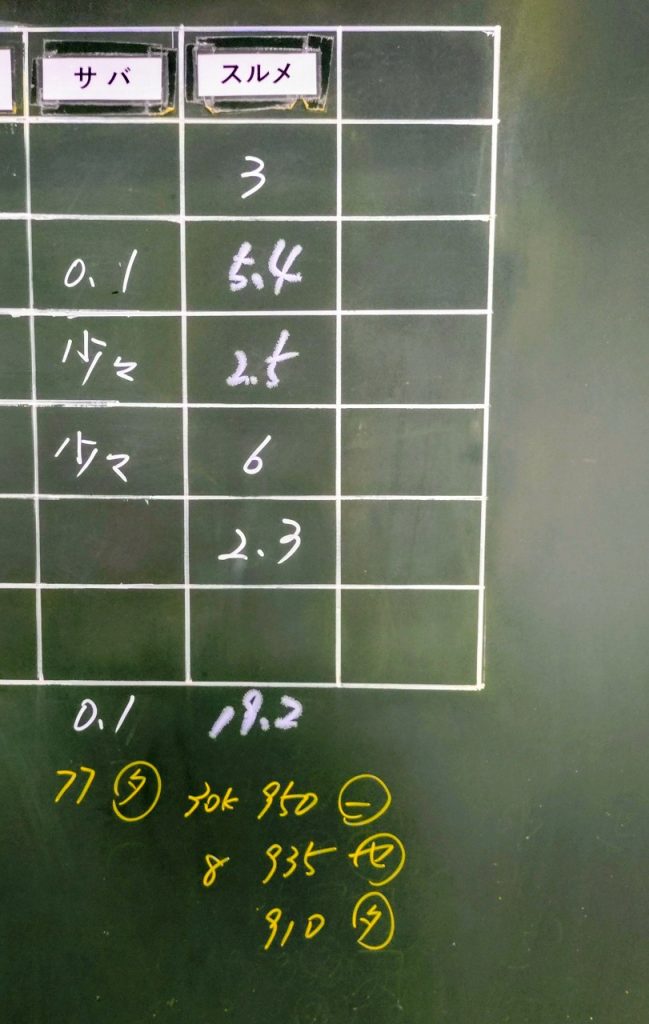 サバ スルメ
3
0.1 5.4
少々 2.5
少々 6
2.3
0.1 19.2
77 タ 30K 950 ニ
8 935 セ
910 タ